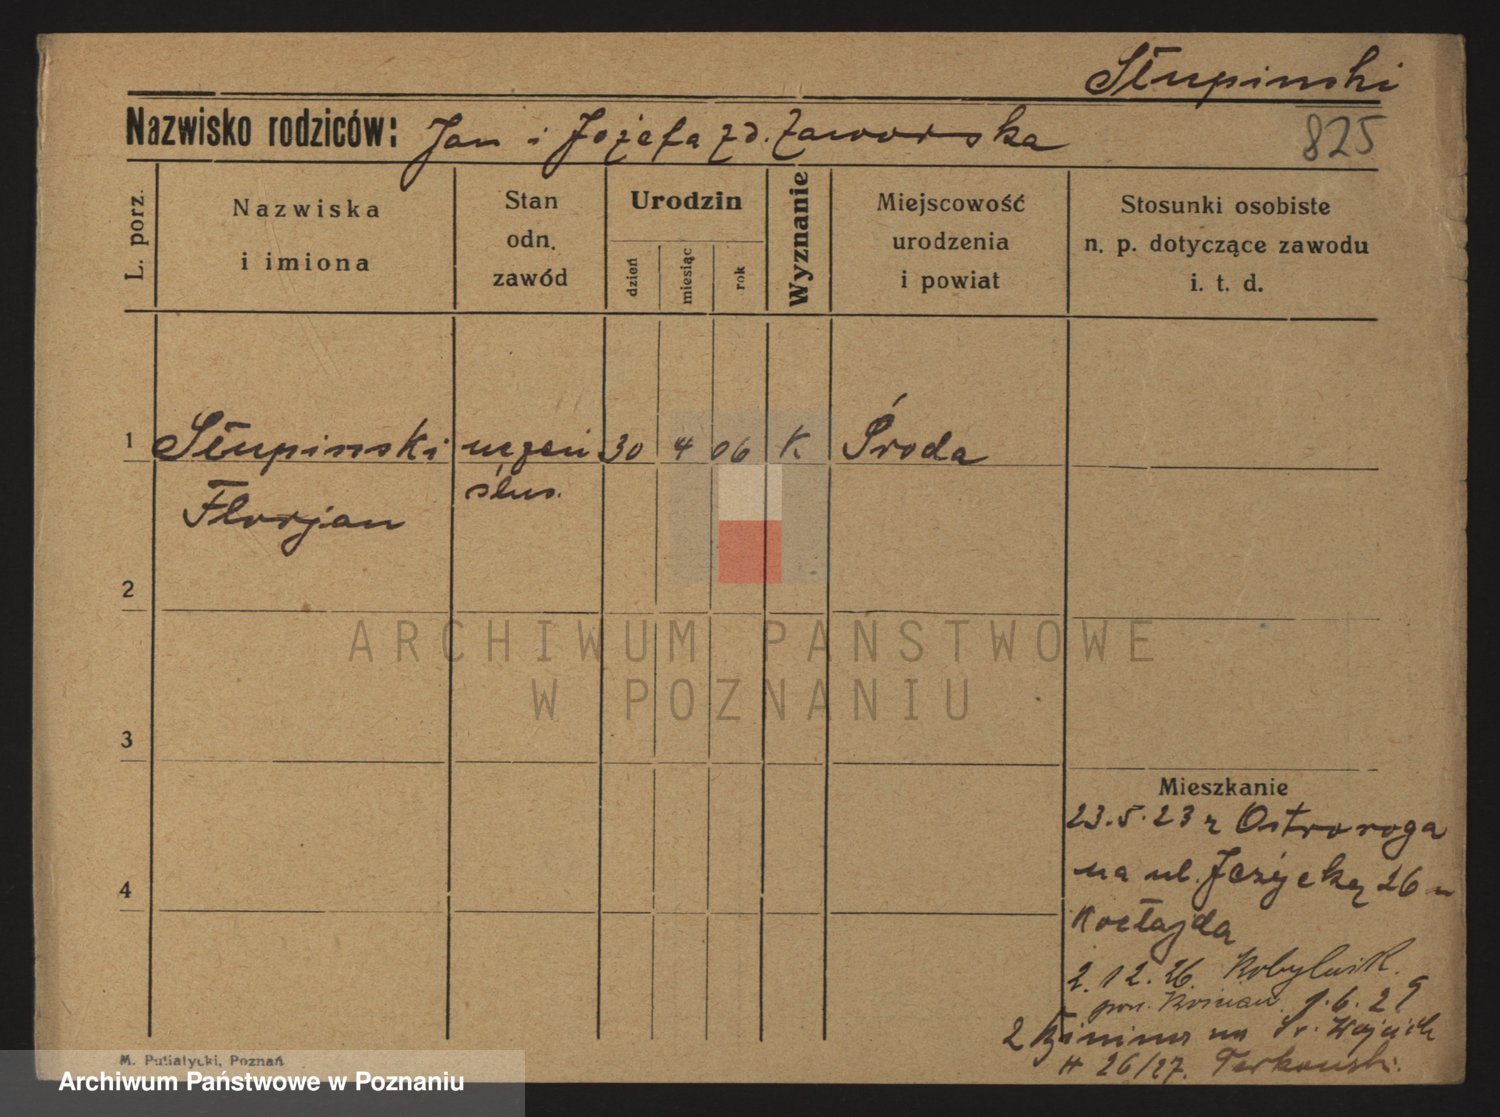 Słupinski
Nazwisko rodziców: Jan i Józefa zd. Zaworska
825
L. porz.
Nazwiska
i imiona
Stan
odn.
zawód
Urodzin
dzień
miesiąc
rok
Wyznanie
Miejscowość
urodzenia
i powiat
Stosunki osobiste
n. p. dotyczące zawodu
i. t. d.
1 Słupinski uczeń 30 4 06 K Środa
ślus.
Florjan
2
ARCHIWUM PAŃSTWOWE
W POZNANIU
3
Mieszkanie
23.5.23 z Ostroroga
na ul. Jeżycką 26 u
4
Kołłajda
2.12.26 Kobylnik
pow. Kościan 1.6.29
2 na Św. Wojciech
26/27.
M. Putiatycki, Poznań
Archiwum Państwowe w Poznaniu